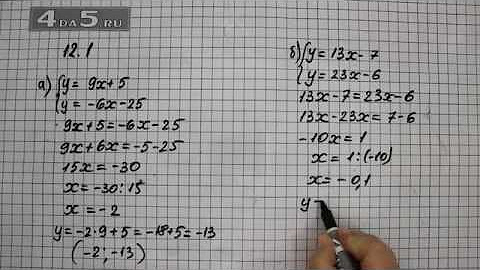 4DA5.RU
12.1
а) { y = 9x+5
y = -6x-25
9x+5 = -6x-25
9x+6x = -5-25
15x = -30
x = -30:15
x = -2
y = -2·9+5 = -18+5 = -13
(-2; -13)
б) { y = 13x-7
y = 23x-6
13x-7 = 23x-6
13x-23x = 7-6
-10x = 1
x = 1:(-10)
x = -0,1
y =